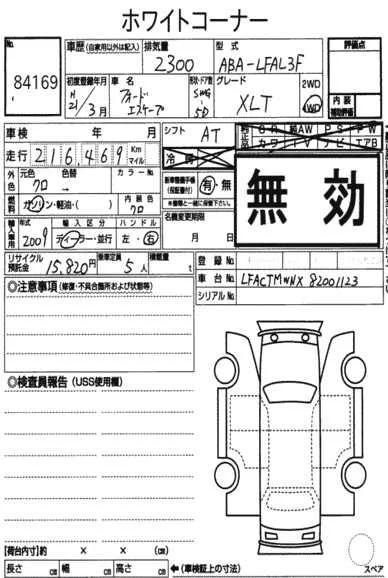 ホワイトコーナー
No.
84169
車歴(自家用以外は記入)
排気量
2300
型式
ABA-LFAL3F
評価点
初度登録年月
H21/3月
車名
フォード エスケープ
形状・ドア数
SWG-5D
グレード
XLT
2WD
4WD
内装
補助評価
車検 年 月
シフト AT
走行 216,469 Km マイル
冷房
外色
元色 クロ
色替 →
カラーNo
燃料
ガソリン・軽油・( )
内装色 クロ
新車整備手帳(保証書付) 有・無
名義変更期限
月 日
無効
輸入車用
年式 2009
輸入区分 ディーラー・並行
ハンドル 左・右
リサイクル預託金 15,820円
乗車定員 5人
積載量 t
登録No.
車台No. LFACTMWNX 82001123
シリアルNo.
◎注意事項(修復・不具合箇所および状態等)
◎検査員報告(USS使用欄)
【荷台内寸】約 × × (cm)
長さ cm 幅 cm 高さ cm
←(車検証上の寸法)
スペア